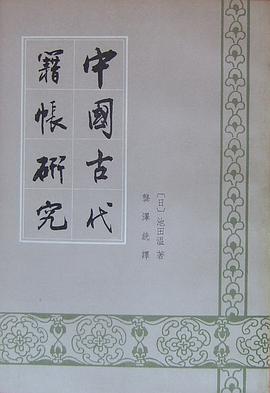 中國古代
籍帳研究
〔日〕池田溫 著
龔澤銑 譯